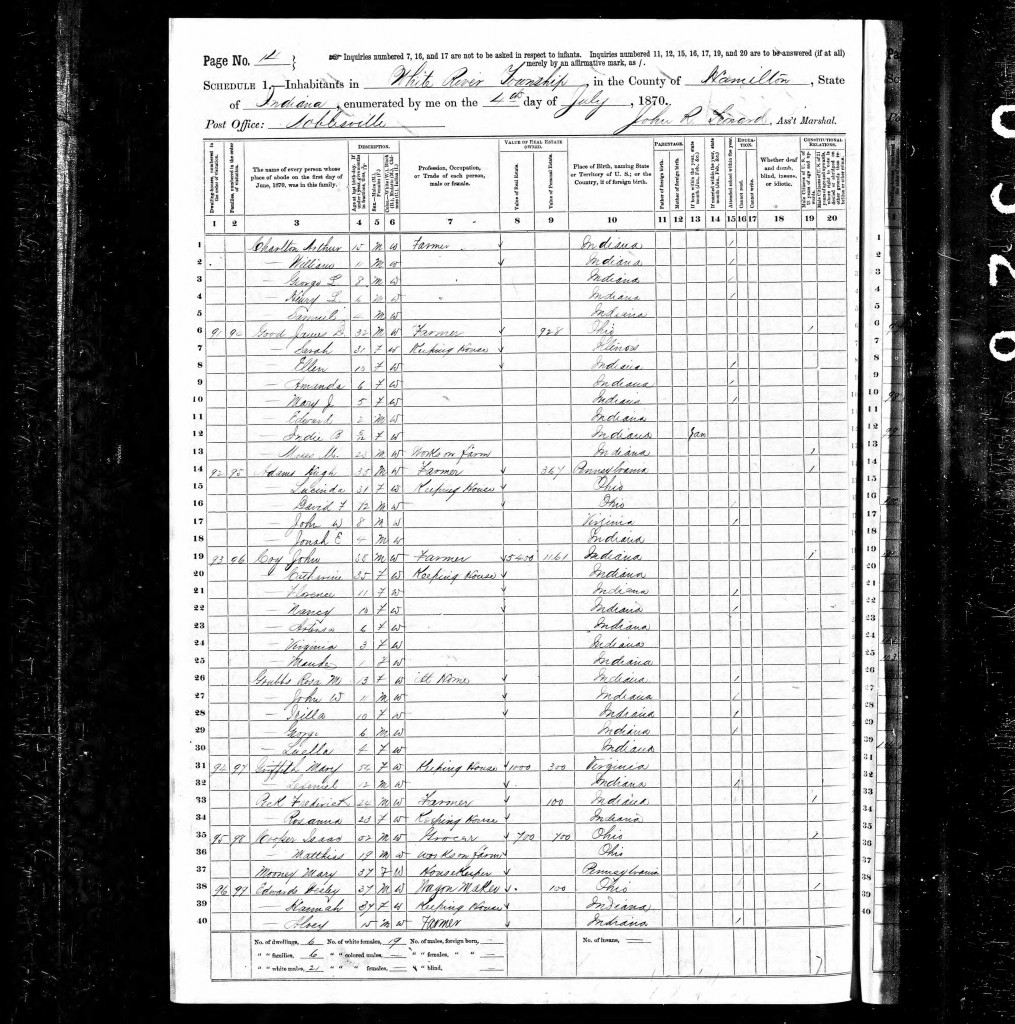 Page No. 14 } Inquiries numbered 7, 16, and 17 are not to be asked in respect to infants. Inquiries numbered 11, 12, 15, 16, 17, 19, and 20 are to be answered (if at all)
merely by an affirmative mark, as /.
SCHEDULE 1.—Inhabitants in White River Township, in the County of Hamilton, State
of Indiana, enumerated by me on the 4th day of July, 1870.
Post Office: Noblesville John R, Ass't Marshal.
DESCRIPTION. VALUE OF REAL ESTATE OWNED. PARENTAGE. EDUCATION. CONSTITUTIONAL RELATIONS.
The name of every person whose place of abode on the first day of June, 1870, was in this family. Profession, Occupation, or Trade of each person, male or female. Value of Real Estate. Value of Personal Estate. Place of Birth, naming State or Territory of U. S.; or the Country, if of foreign birth. Father of foreign birth. Mother of foreign birth. Attended school within the year. Cannot read. Cannot write. Whether deaf and dumb, blind, insane, or idiotic.
1 2 3 4 5 6 7 8 9 10 11 12 13 14 15 16 17 18 19 20
1 Charlton Arthur 15 M W Farmer Indiana /
2 — William 11 M W Indiana /
3 — George L 8 M W Indiana /
4 — Henry L 6 M W Indiana /
5 — Samuel 4 M W Indiana
6 91 94 Good James 32 M W Farmer 928 Ohio /
7 — Sarah 31 F W Keeping House Illinois
8 — Ellen 10 F W Indiana /
9 — Amanda 6 F W Indiana /
10 — Mary J 5 F W Indiana /
11 — Edward 2 M W Indiana
12 — B F W Indiana Jan
13 — Moses M. M W Works on Farm Indiana /
14 92 95 Adams Hugh 35 M W Farmer 367 Pennsylvania /
15 Lucinda 31 F W Keeping House Ohio
16 David F 12 M W Ohio /
17 — John W 8 M W Virginia /
18 — Jonah E 4 M W Indiana
19 93 96 Coy John 38 M W Farmer 5400 1161 Indiana /
20 — Catherine 35 F W Keeping House Indiana
21 — Florence 11 F W Indiana /
22 — Nancy 10 F W Indiana /
23 — 6 F W Indiana
24 — Virginia 3 F W Indiana
25 — Maude 1 F W Indiana
26 Grubbs Rosa M 13 F W At Home Indiana /
27 — John W 11 M W Indiana /
28 — 10 F W Indiana /
29 — George 6 M W Indiana /
30 — Luella 4 F W Indiana
31 94 97 Griffith Mary F W Keeping House 1000 300 Virginia
32 — 12 M W Indiana /
33 Frederick 24 M W Farmer 100 Indiana /
34 — Rosanna 23 F W Keeping House Indiana
35 95 98 Cooper Isaac 52 M W Grocer 700 400 Ohio /
36 — Matthias 19 M W works on Farm Ohio
37 Mooney Mary 37 F W HouseKeeper Pennsylvania
38 96 99 Edwards 37 M W Wagon Maker 100 Ohio /
39 — Hannah 37 F W Keeping House Indiana
40 — Alvey 15 M W Farmer Indiana /
No. of dwellings, 6 No. of white females, 19 No. of males, foreign born, — No. of insane, —
" " families, 6 " " colored males, — " " females, " " —
" " white males, 21 " " " females, — " " blind, —